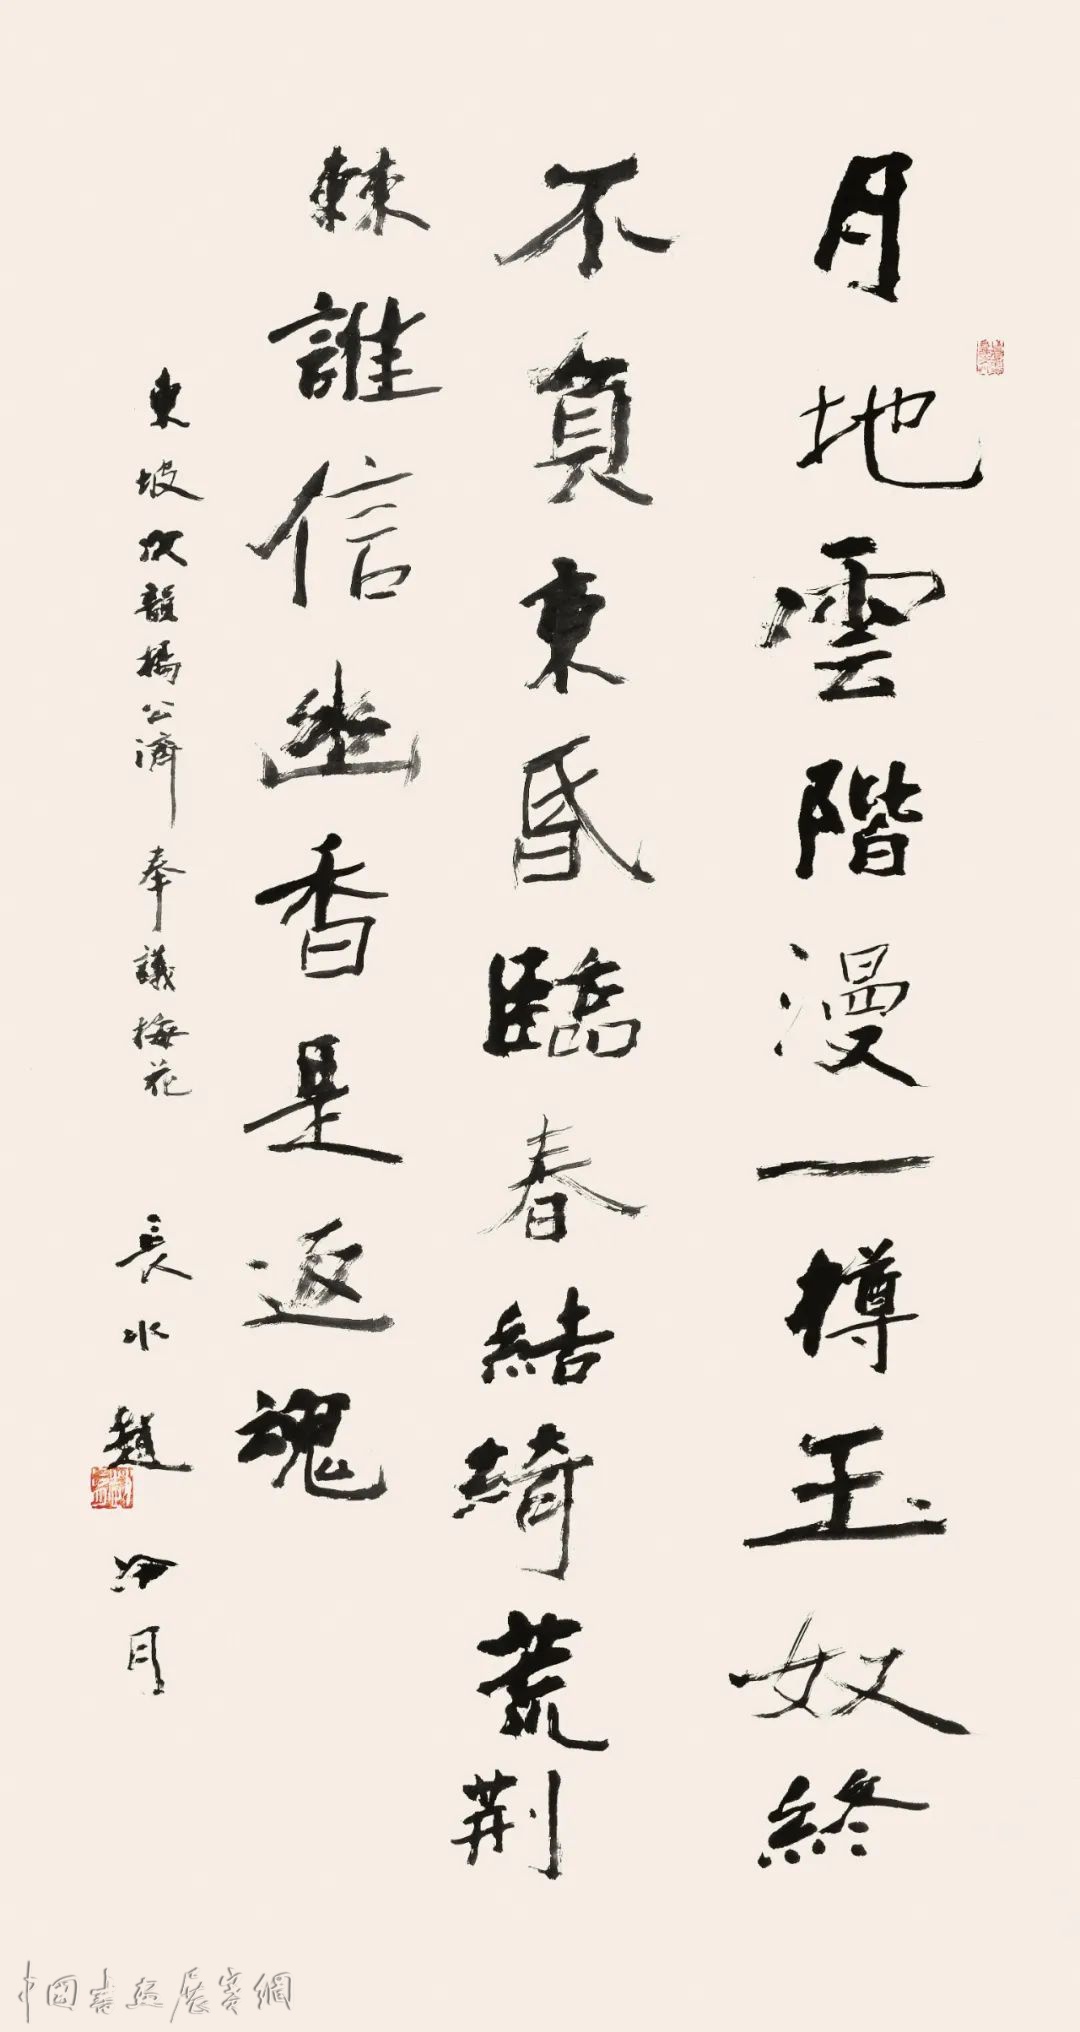 月地雲階漫一樽玉奴終
不負東昏臨春結綺荒荆
棘誰信幽香是返魂
東坡次韻楊公濟奉議梅花 長水趙冷月
中國書畫展賽網